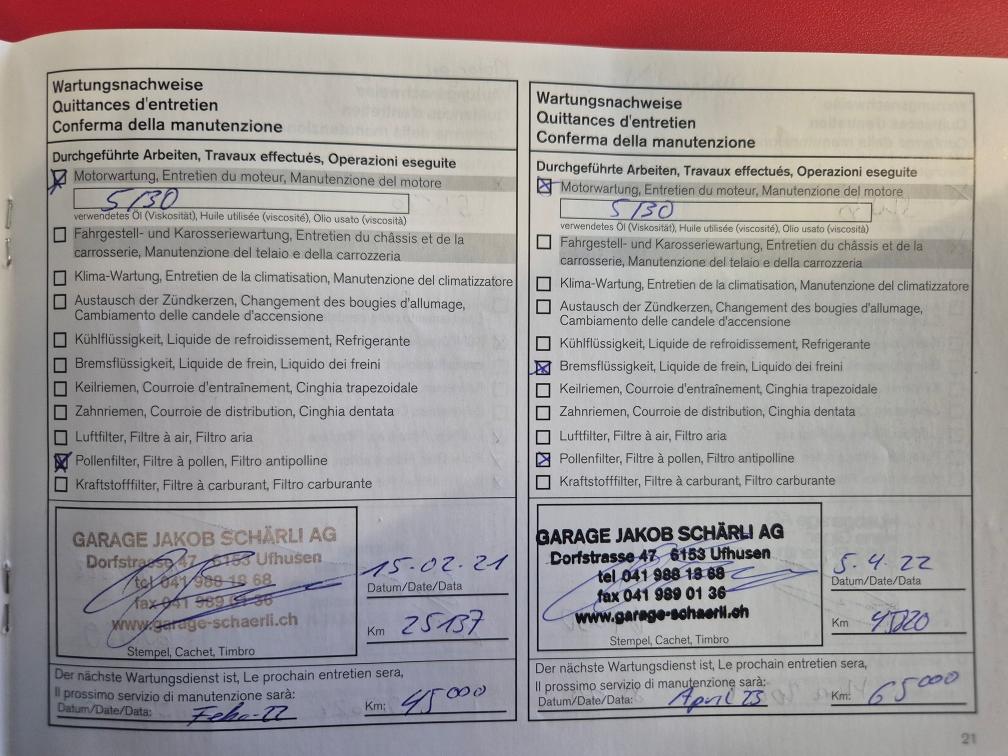 Wartungsnachweise
Quittances d'entretien
Conferma della manutenzione
Durchgeführte Arbeiten, Travaux effectués, Operazioni eseguite
Motorwartung, Entretien du moteur, Manutenzione del motore
5/30
verwendetes Öl (Viskosität), Huile utilisée (viscosité), Olio usato (viscosità)
Fahrgestell- und Karosseriewartung, Entretien du châssis et de la
carrosserie, Manutenzione del telaio e della carrozzeria
Klima-Wartung, Entretien de la climatisation, Manutenzione del climatizzatore
Austausch der Zündkerzen, Changement des bougies d'allumage,
Cambiamento delle candele d'accensione
Kühlflüssigkeit, Liquide de refroidissement, Refrigerante
Bremsflüssigkeit, Liquide de frein, Liquido dei freini
Keilriemen, Courroie d'entraînement, Cinghia trapezoidale
Zahnriemen, Courroie de distribution, Cinghia dentata
Luftfilter, Filtre à air, Filtro aria
Pollenfilter, Filtre à pollen, Filtro antipolline
Kraftstofffilter, Filtre à carburant, Filtro carburante
GARAGE JAKOB SCHÄRLI AG
Dorfstrasse 47, 6153 Ufhusen
tel 041 988 18 68
fax 041 989 01 36
www.garage-schaerli.ch
Stempel, Cachet, Timbro
15-02-21
Datum/Date/Data
Km 25137
Der nächste Wartungsdienst ist, Le prochain entretien sera,
Il prossimo servizio di manutenzione sarà:
Datum/Date/Data: Febr-22 Km: 45000
Wartungsnachweise
Quittances d'entretien
Conferma della manutenzione
Durchgeführte Arbeiten, Travaux effectués, Operazioni eseguite
Motorwartung, Entretien du moteur, Manutenzione del motore
5/30
verwendetes Öl (Viskosität), Huile utilisée (viscosité), Olio usato (viscosità)
Fahrgestell- und Karosseriewartung, Entretien du châssis et de la
carrosserie, Manutenzione del telaio e della carrozzeria
Klima-Wartung, Entretien de la climatisation, Manutenzione del climatizzatore
Austausch der Zündkerzen, Changement des bougies d'allumage,
Cambiamento delle candele d'accensione
Kühlflüssigkeit, Liquide de refroidissement, Refrigerante
Bremsflüssigkeit, Liquide de frein, Liquido dei freini
Keilriemen, Courroie d'entraînement, Cinghia trapezoidale
Zahnriemen, Courroie de distribution, Cinghia dentata
Luftfilter, Filtre à air, Filtro aria
Pollenfilter, Filtre à pollen, Filtro antipolline
Kraftstofffilter, Filtre à carburant, Filtro carburante
GARAGE JAKOB SCHÄRLI AG
Dorfstrasse 47, 6153 Ufhusen
tel 041 988 18 68
fax 041 989 01 36
www.garage-schaerli.ch
Stempel, Cachet, Timbro
5.4.22
Datum/Date/Data
Km
Der nächste Wartungsdienst ist, Le prochain entretien sera,
Il prossimo servizio di manutenzione sarà:
Datum/Date/Data: April 23 Km: 65000
21